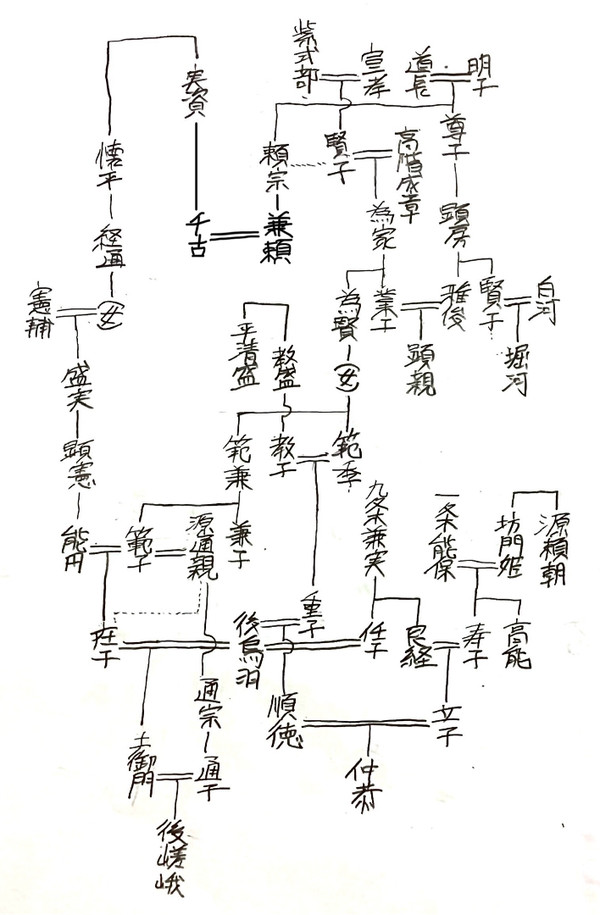 紫式部
宣孝
道長
明子
実資
頼宗
賢子
高階成章
尊子
懐平
千古
兼頼
為家
顕房
経通
憲輔
女
為賢
業子
雅俊
賢子
白河
平清盛
教盛
女
顕親
堀河
盛実
顕憲
範兼
教子
範季
能円
範子
源通親
兼子
九条兼実
一条能保
坊門姫
源頼朝
在子
後鳥羽
重子
任子
良経
寿子
高能
通宗
順徳
立子
土御門
通子
仲恭
後嵯峨